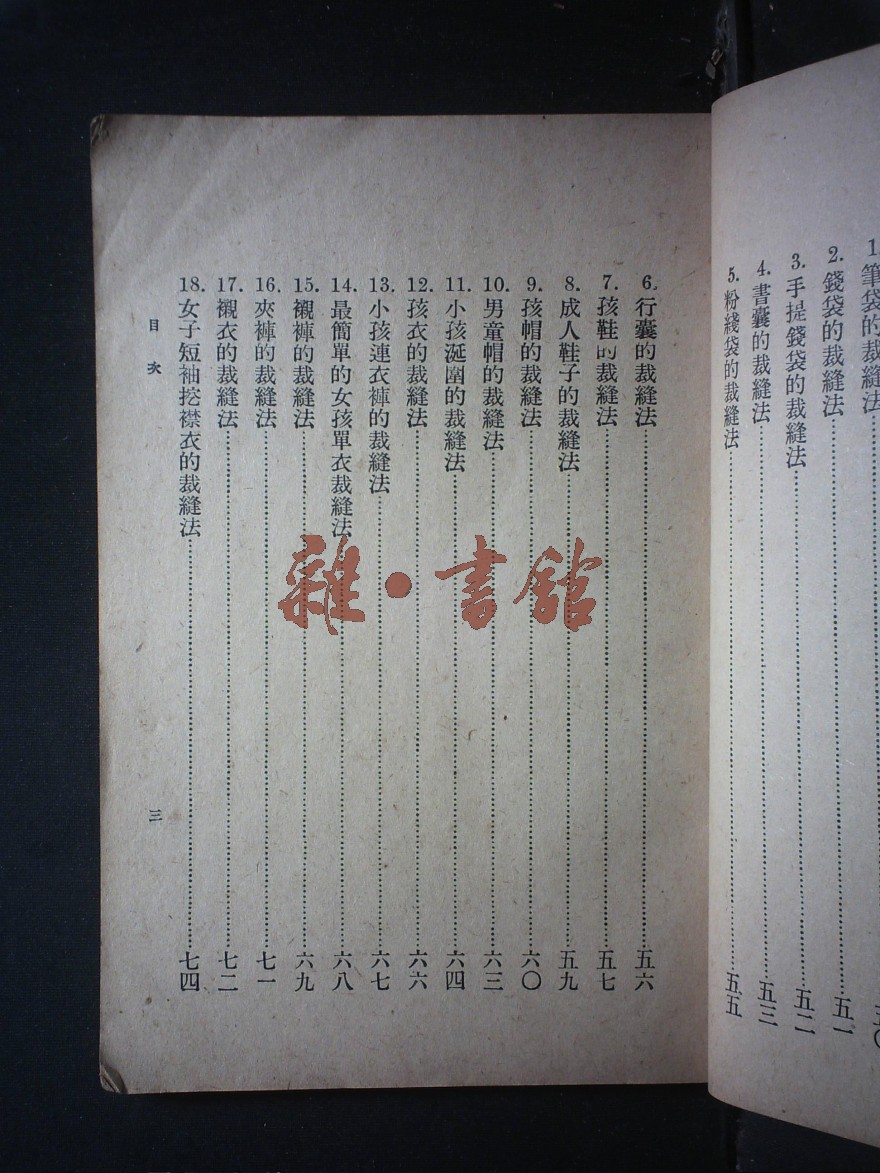 1.筆袋的裁縫法……五〇
2.錢袋的裁縫法……五一
3.手提錢袋的裁縫法……五二
4.書囊的裁縫法……五三
5.粉綫袋的裁縫法……五五
6.行囊的裁縫法……五六
7.孩鞋的裁縫法……五七
8.成人鞋子的裁縫法……五九
9.孩帽的裁縫法……六〇
10.男童帽的裁縫法……六三
11.小孩涎圍的裁縫法……六四
12.孩衣的裁縫法……六六
13.小孩連衣褲的裁縫法……六七
14.最簡單的女孩單衣裁縫法……六八
15.襯褲的裁縫法……六九
16.夾褲的裁縫法……七一
17.襯衣的裁縫法……七二
18.女子短袖挖襟衣的裁縫法……七四
目次
三
雜·書館